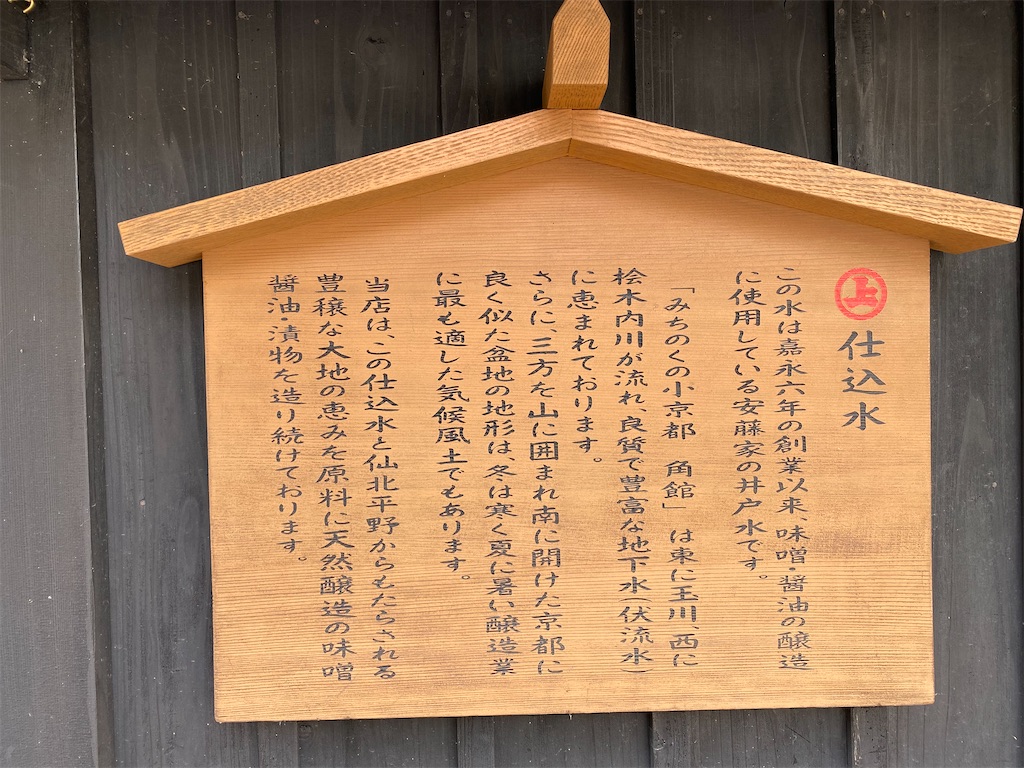 上 仕込水
この水は嘉永六年の創業以来、味噌・醤油の醸造
に使用している安藤家の井戸水です。
「みちのくの小京都　角館」は東に玉川、西に
桧木内川が流れ、良質で豊富な地下水（伏流水）
に恵まれております。
さらに、三方を山に囲まれ南に開けた京都に
良く似た盆地の地形は、冬は寒く夏に暑い醸造業
に最も適した気候風土でもあります。
当店は、この仕込水と仙北平野からもたらされる
豊穣な大地の恵みを原料に天然醸造の味噌
醤油・漬物を造り続けております。